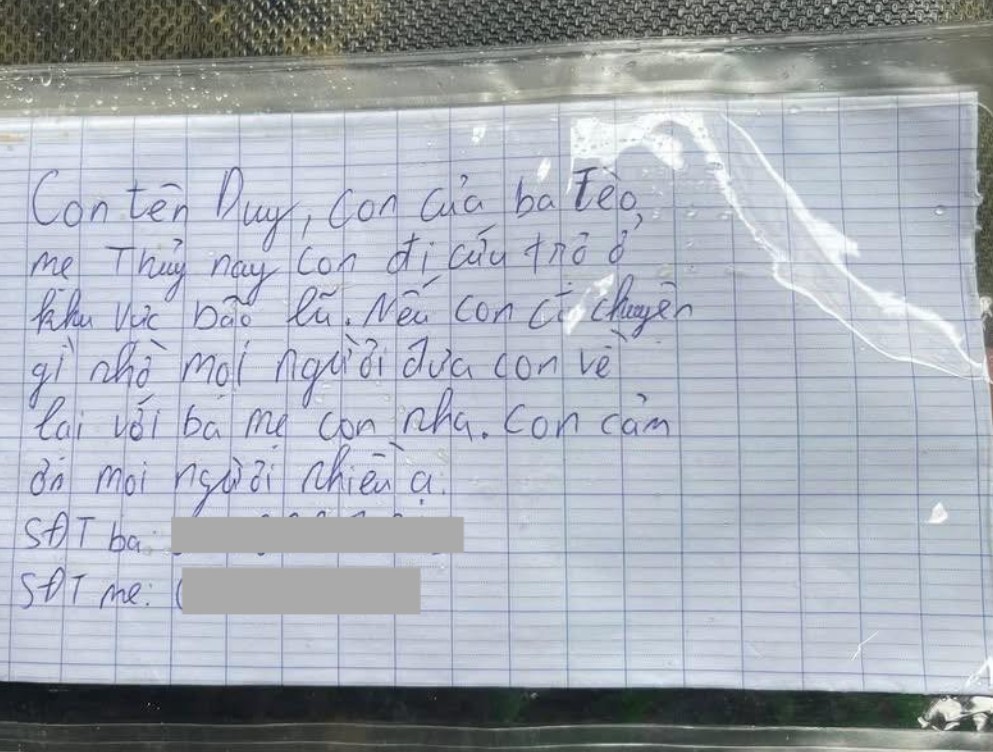 Con tên Duy, con của ba Tèo,
mẹ Thủy nay con đi cứu trợ ở
khu vực bão lũ. Nếu con có chuyện
gì nhờ mọi người đưa con về
lại với ba mẹ con nha. Con cảm
ơn mọi người nhiều ạ.
SĐT ba:
SĐT mẹ: (